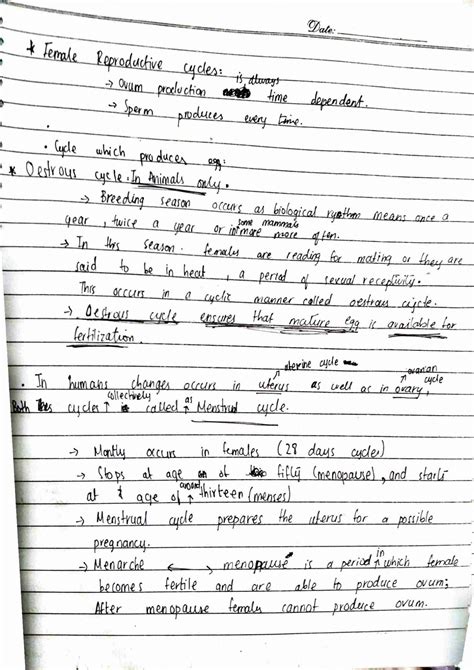 Date:
* Female Reproductive cycles:
→ Ovum production is always time dependent.
→ Sperm produces every time.
• Cycle which produces egg:
* Oestrous cycle. In Animals only.
→ Breeding season occurs as biological rythm means once a
year, twice a year or in some mammals more more often.
→ In this season females are reading for mating or they are
said to be in heat, a period of sexual receptivity.
This occurs in a cyclic manner called oestrous cycle.
→ Oestrous cycle ensures that mature egg is available for
fertilization.
uterine cycle ovarian cycle
• In humans changes occurs in uterus as well as in ovary,
Both cycles collectively called as Menstrual cycle.
→ Montly occurs in females (28 days cycle)
→ Stops at age of fifty (menopause), and starts
at age of around thirteen (menses)
→ Menstrual cycle prepares the uterus for a possible
pregnancy.
→ Menarche ⟷ menopause is a period in which female
becomes fertile and are able to produce ovum;
After menopause females cannot produce ovum.